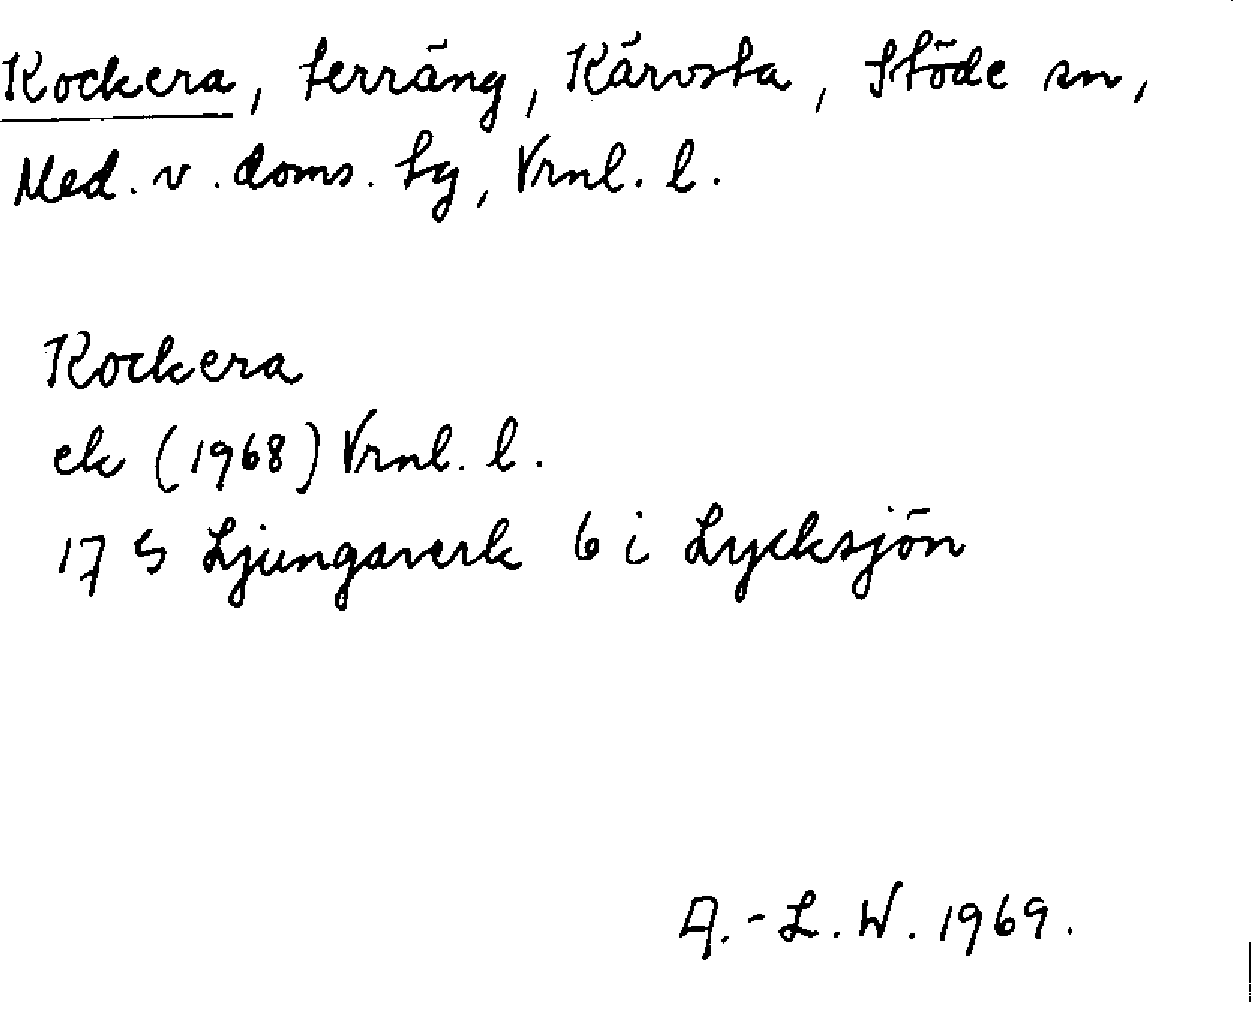 Kockera, terräng, Kärvsta, Stöde sn,
Med. v. doms. tg, Vrnl. l.
Kockera
ek (1968) Vrnl. l.
17 G Ljungaverk 6 i Lycksjön
A.-L. W. 1969.